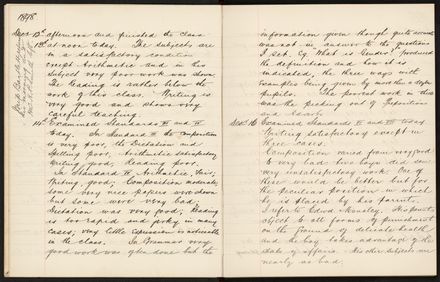 1898.
Decr 13th afternoon and finished the class
13th at noon today. The subjects are
in a satisfactory condition
except Arithmetic and in this
subject very poor work was shown
The Reading is rather below the
work of this class. Writing is
very good and shows very
careful teaching.
14th Examined Standards III and IV
today. In Standard III the Composition
is very poor, the Dictation and
Spelling poor, Arithmetic satisfactory
Writing good, Reading poor.
In Standard IV Arithmetic, fair;
Writing, good; Composition, moderate,
some very nice papers were shown
but some were very bad;
Dictation was very good; Reading
is too rapid and jerky in many
cases, very little expression is noticeable
in the class. In Grammar very
good work was often done but the
information given though quite sound
was not in answer to the questions
I set. Eg. What is Gender? produced
the definition and how it is
indicated, the three ways with
examples being given by more than a dozen
pupils. The poorest work in this
was the picking out of Prepositions
and Adverbs.
Dec. 16 Examined Standards V and VI today
Writing satisfactory except in
three cases.
Composition varied from very good
to very bad. Two boys did
very unsatisfactory work. One of
these would be better but for
the peculiar position in which
he is placed by his parents.
I refer to Lloyd
object to all forms of punishment
on the ground of delicate health
and the boy takes advantage of the
state of affairs. His other subjects are
nearly as bad.